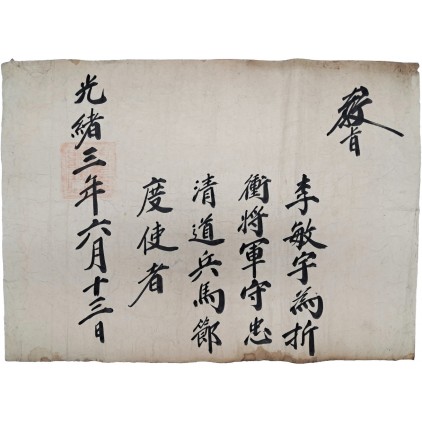 教旨
李敏宇為折
衝將軍守忠
清道兵馬節
度使者
光緒三年六月十三日